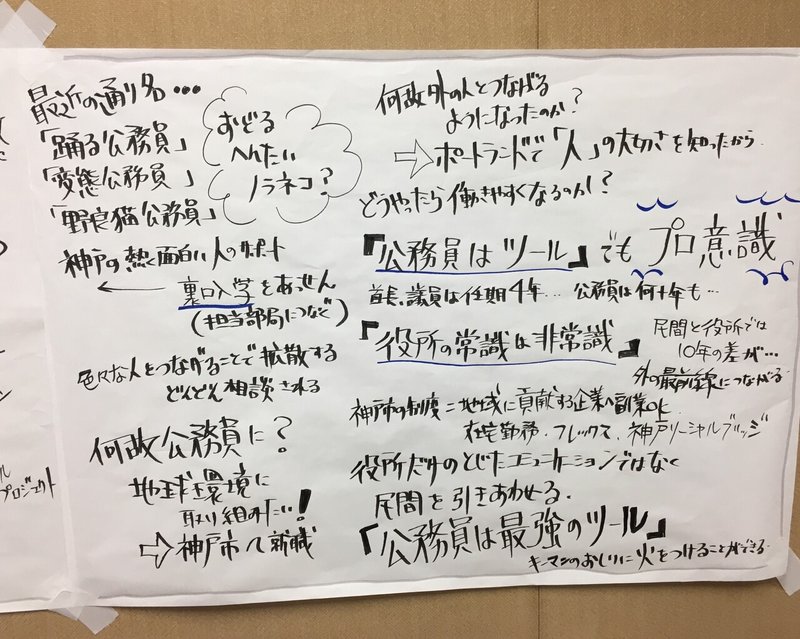 最近の通り名…
「踊る公務員」
「変態公務員」
「野良猫公務員」
おどる
へんたい
ノラネコ?
神戸の熱く面白い人のサポート
← 裏口入学をあっせん
(担当部局につなぐ)
色々な人とつながることで拡散する
どんどん相談される
何故公務員に?
地球環境に
取り組みたい!
⇨神戸市へ転職
何故外の人とつながる
ようになったのか?
⇨ポートランドで「人」の大切さを知ったから
どうやったら働きやすくなるのか?
『公務員はツール』でも プロ意識
首長、議員は任期4年… 公務員は何十年も…
『役所の常識は非常識』
民間と役所では
10年の差が…
外の最前線につながる
神戸市の制度=地域に貢献する企業へ副業OK
在宅勤務・フレックス、神戸ソーシャルブリッジ
役所だけのとじたコミュニケーションではなく
民間を引きあわせる。
「公務員は最強のツール」
キーマンのおしりに火をつけることができる
ル
プロジェクト